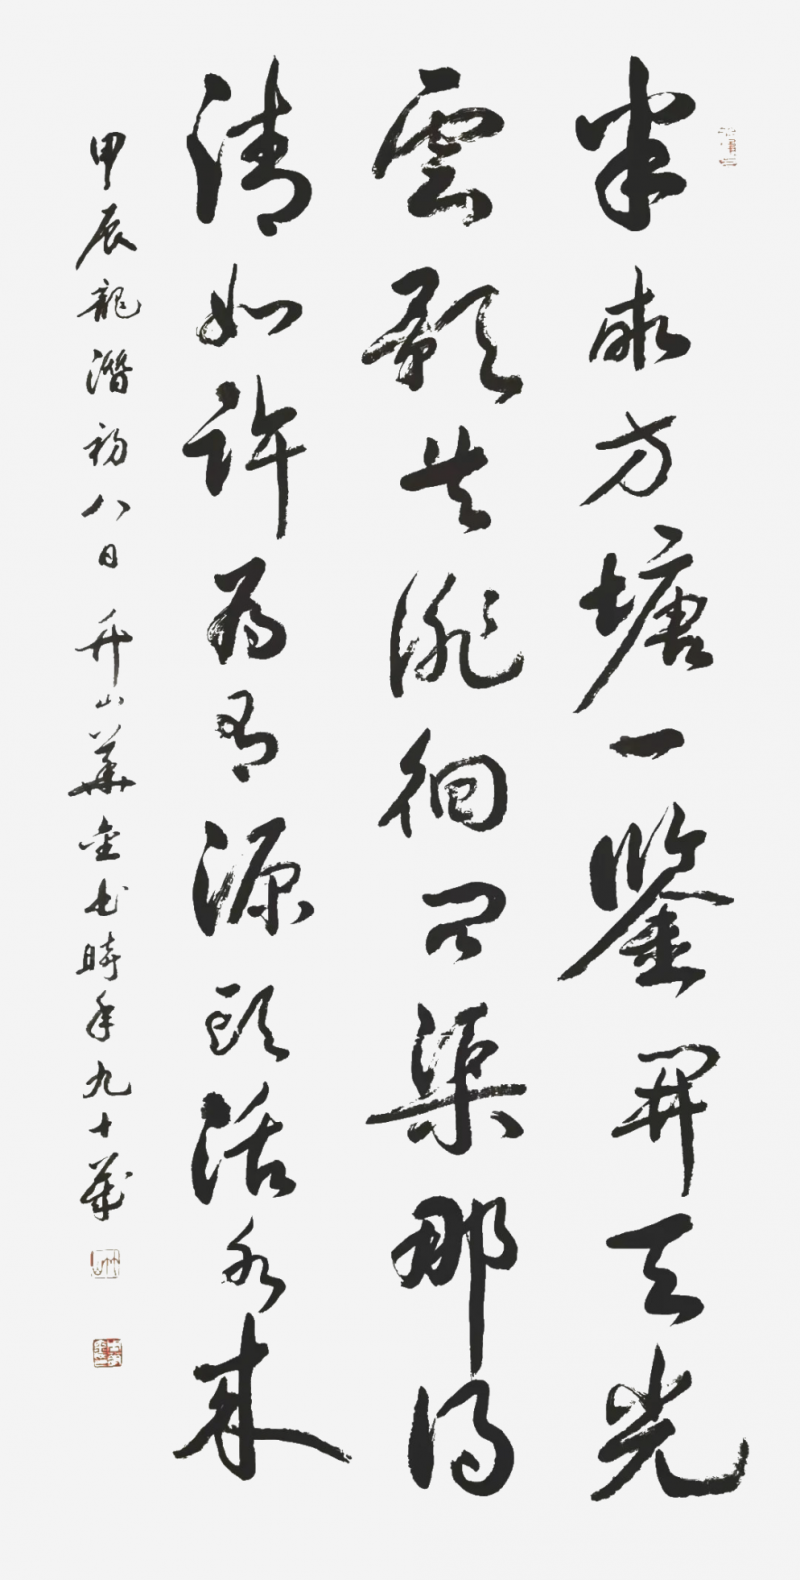 半畝方塘一鑒開天光
雲影共徘徊問渠那得
清如許為有源頭活水來
甲辰龍潛初八日升山華金書時年九十歲